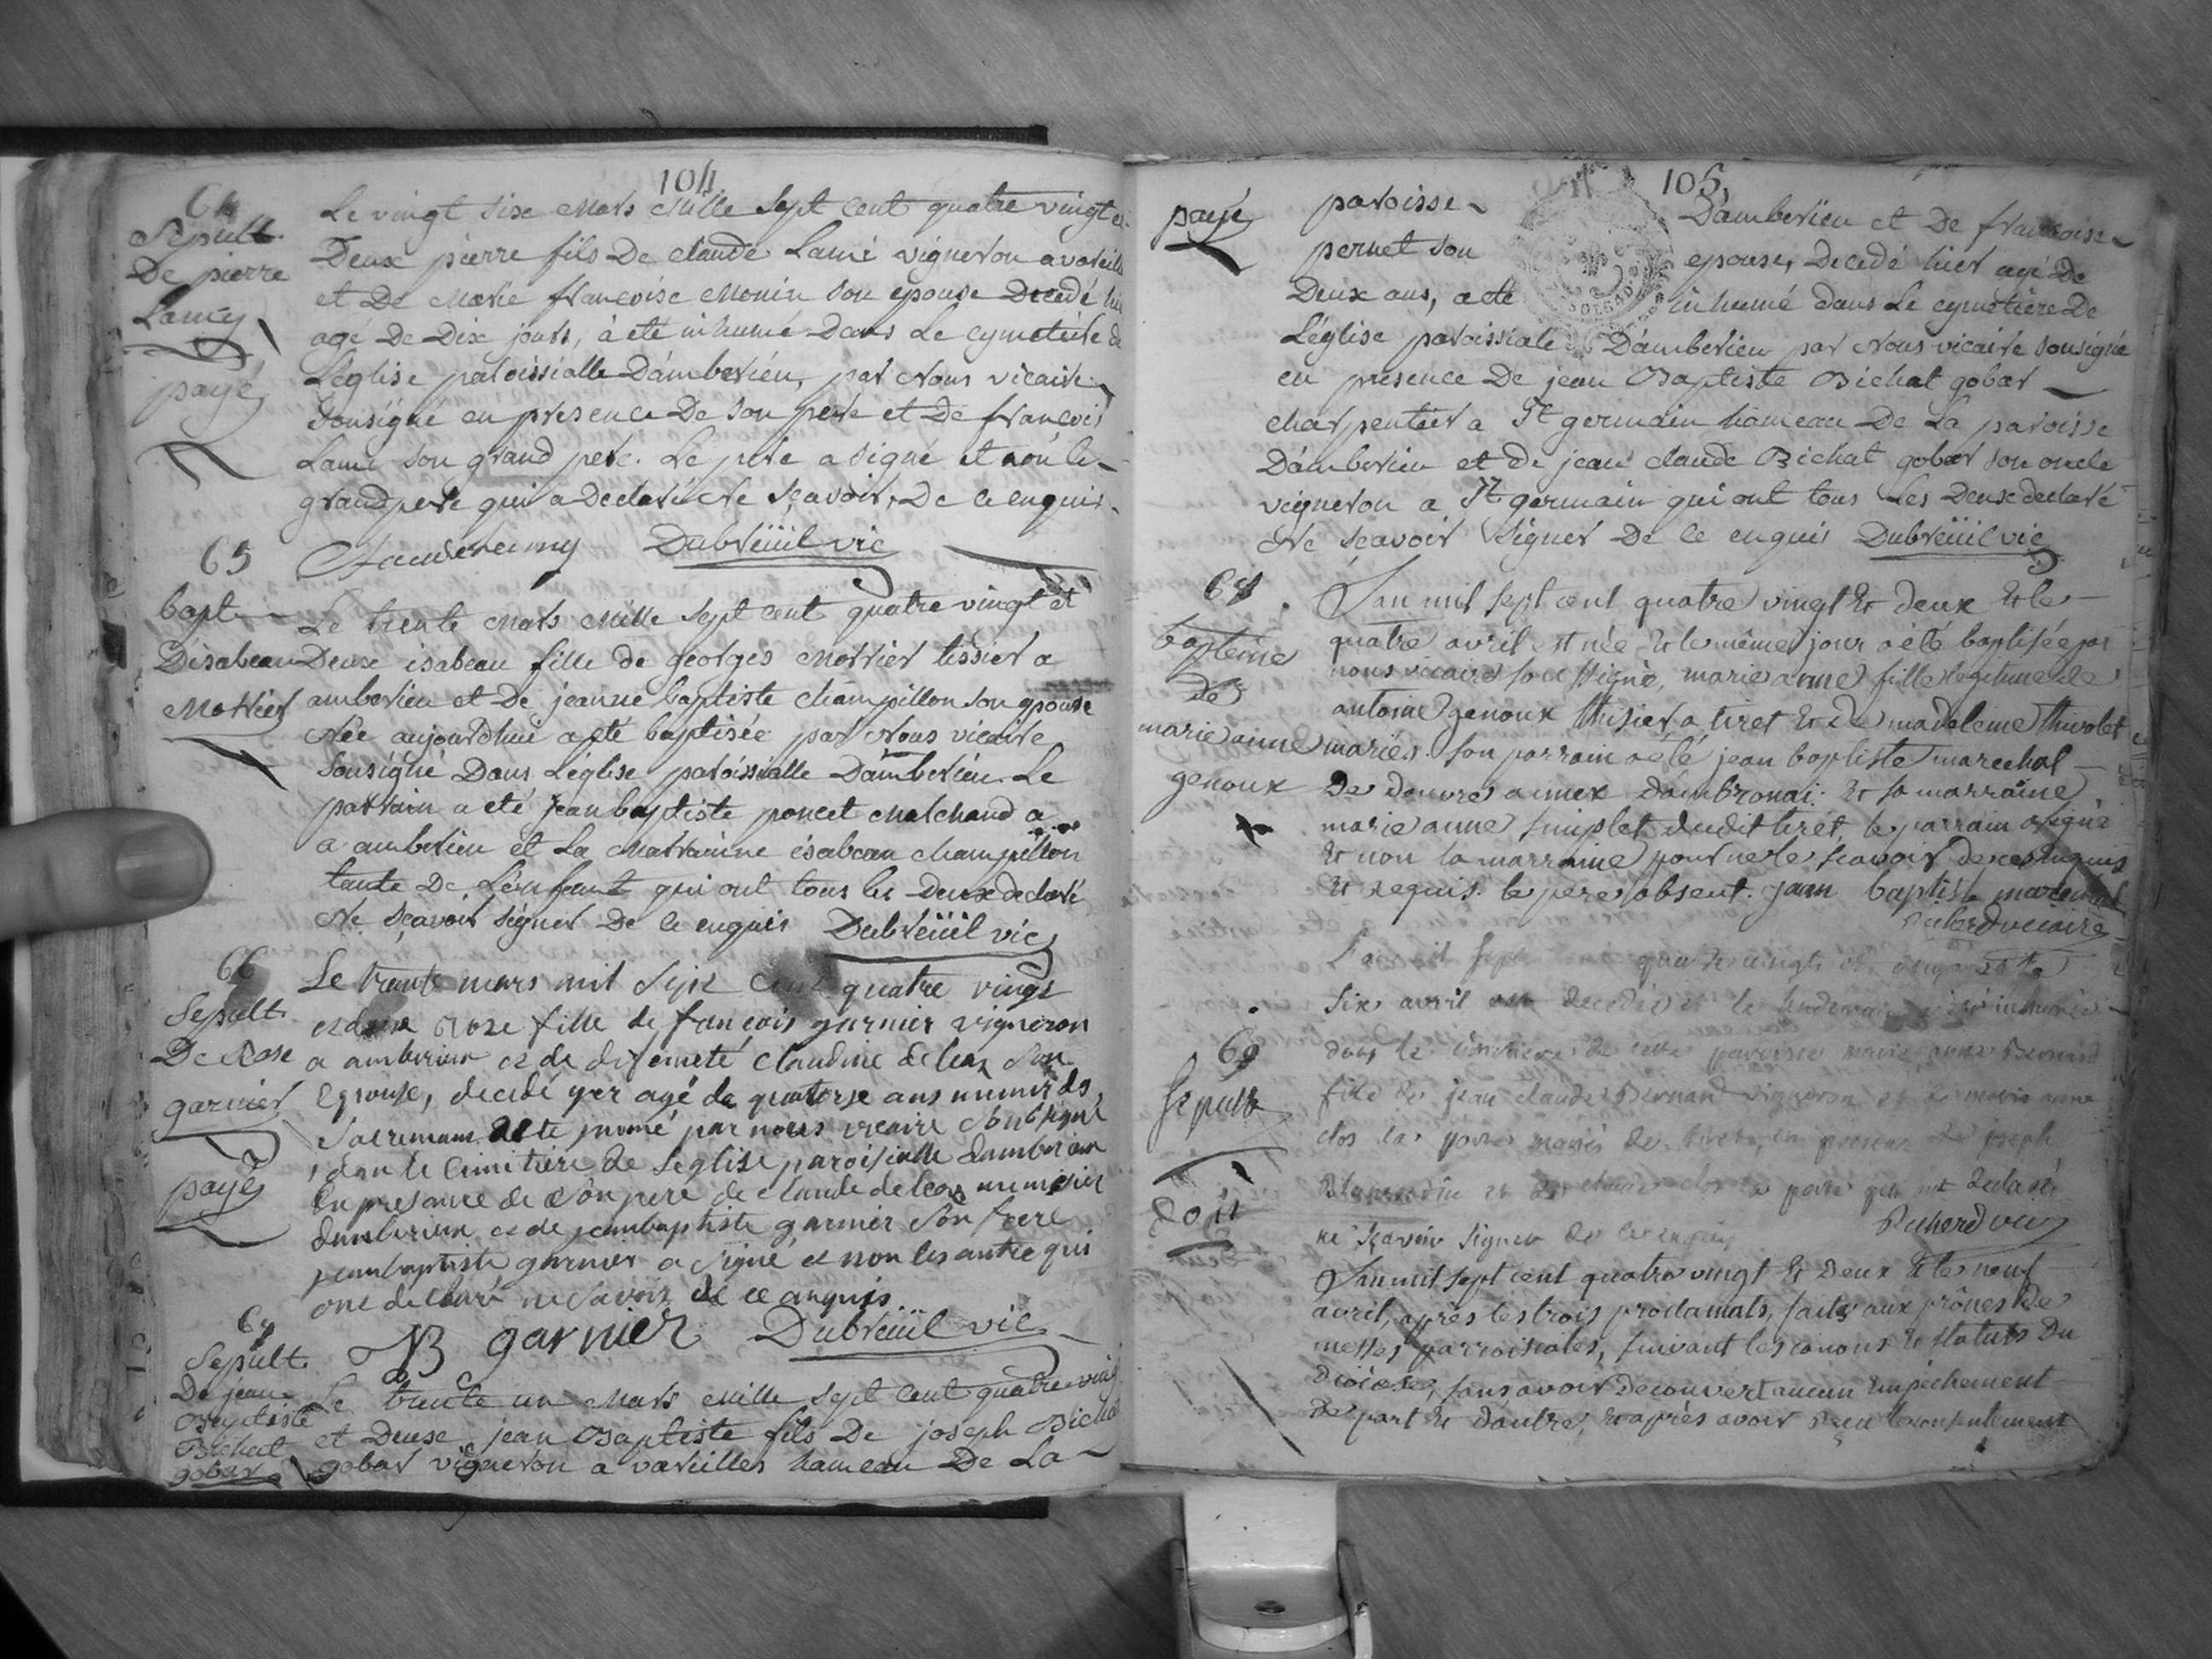 104
64
Sepult.
De pierre
Lamy
payé
Le vingt six Mars Mille Sept Cent quatre vingt et
Deux pierre fils De claude Lami vigneron a vareille
et De Marie francoise Monin son epouse Decedé hier
agé De Dix jours, à eté inhumé Dans Le cymetière de
L'eglise paroissialle D'amberieu, par Nous vicaire
Sousigné en presence De son pere et De francois
Lami son grand pere. Le pere a signé et non le
grand pere qui a Declaré Ne sçavoir, De ce enquis.
Claude Lamy Dubreüil vic
65
bapt
D'isabeau
Morrier
Le trente Mars Mille Sept Cent quatre vingt et
Deux isabeau fille de georges Morrier tissier a
amberieu et De jeanne baptiste champillon son epouse
Née aujourdhui a eté baptisée par Nous vicaire
Sousigné Dans L'eglise paroissialle D'amberieu. Le
parrain a eté jean baptiste poncet Marchand a
a amberieu et La Marrainne isabeau champillon
tante De L'enfant qui ont tous les Deux declaré
Ne sçavoir signer De ce enquis Dubreüil vic
66
Sepult.
De Rose
garnier
payé
Le trante mars mil Sept Cent quatre vingt
et deux Roze fille de francois garnier vigneron
a amberieux et de claudine deleas Son
Epouse, decedé yer agé de quatorse ans munir ds
Sacremans a ete inumé par nous vicaire Soubsigné
dan le Cimitière de l'eglise paroisialle damberieu
En presance de Son pere de claude deleas
damberieu et de jeanbaptiste garnier Son frere
jeanbaptiste garnier a signé et non les autre qui
ont declaré ne Savoir de ce anquis
JB garnier Dubreüil vic
67
Sepult.
De jean
Baptiste
Bichat
gobar
Le trente un Mars Mille Sept Cent quatre vingt
et Deux jean Baptiste fils De joseph Bichat
gobar vigneron a vareilles hameau De La
105
payé
paroisse D'amberieu et De francoise
pernet son epouse, Decedé hier agé De
Deux ans, a eté inhumé dans Le cymetiere De
L'église paroissiale D'amberieu par Nous vicaire sousigné
en presence De jean Baptiste Bichat gobar
charpentier a St germain hameau De La paroisse
D'amberieu et de jean claude Bichat gobar son oncle
vigneron a St germain qui ont tous Les Deux declaré
Ne sçavoir signer De ce enquis Dubreüil vic
68
baptême
de
marie anne
genoux
L'an mil sept cent quatre vingt & deux & le
quatre avril est née & le même jour a été baptisée par
nous vicaire soussigné, marie anne fille legitime de
antoine genoux thisier a tiret & de madeleine thivolet
mariés. son parrain a été jean baptiste marechal
De douvre annex d'ambronai. & sa marraine
marie anne simplet dudit tiret, le parrain a signé
& non la marraine pour ne le sçavoir de ce enquis
& requis. le père absent. jean baptiste marechal
vicaire
69
Sepult
doit
L'an mil sept quatre vingt et deux & le
six avril est decedée et le lendemain a été inhumée
dans le cimetiere de cette paroisse marie anne Bernard
fille de jean claude Bernard vigneron et de marie anne
clos la poire mariés de tiret, en presence de joseph
et de claude clos la poire qui ont declaré
ne sçavoir signer de ce enquis
L'an mil sept cent quatre vingt & Deux & le neuf
avril, après les trois proclamats, faits aux prônes De
messes parroissiales, suivant les canons & statuts Du
Diocèse, sans avoir Decouvert aucun Empêchement
De part & D'autre, & après avoir reçu le consentement